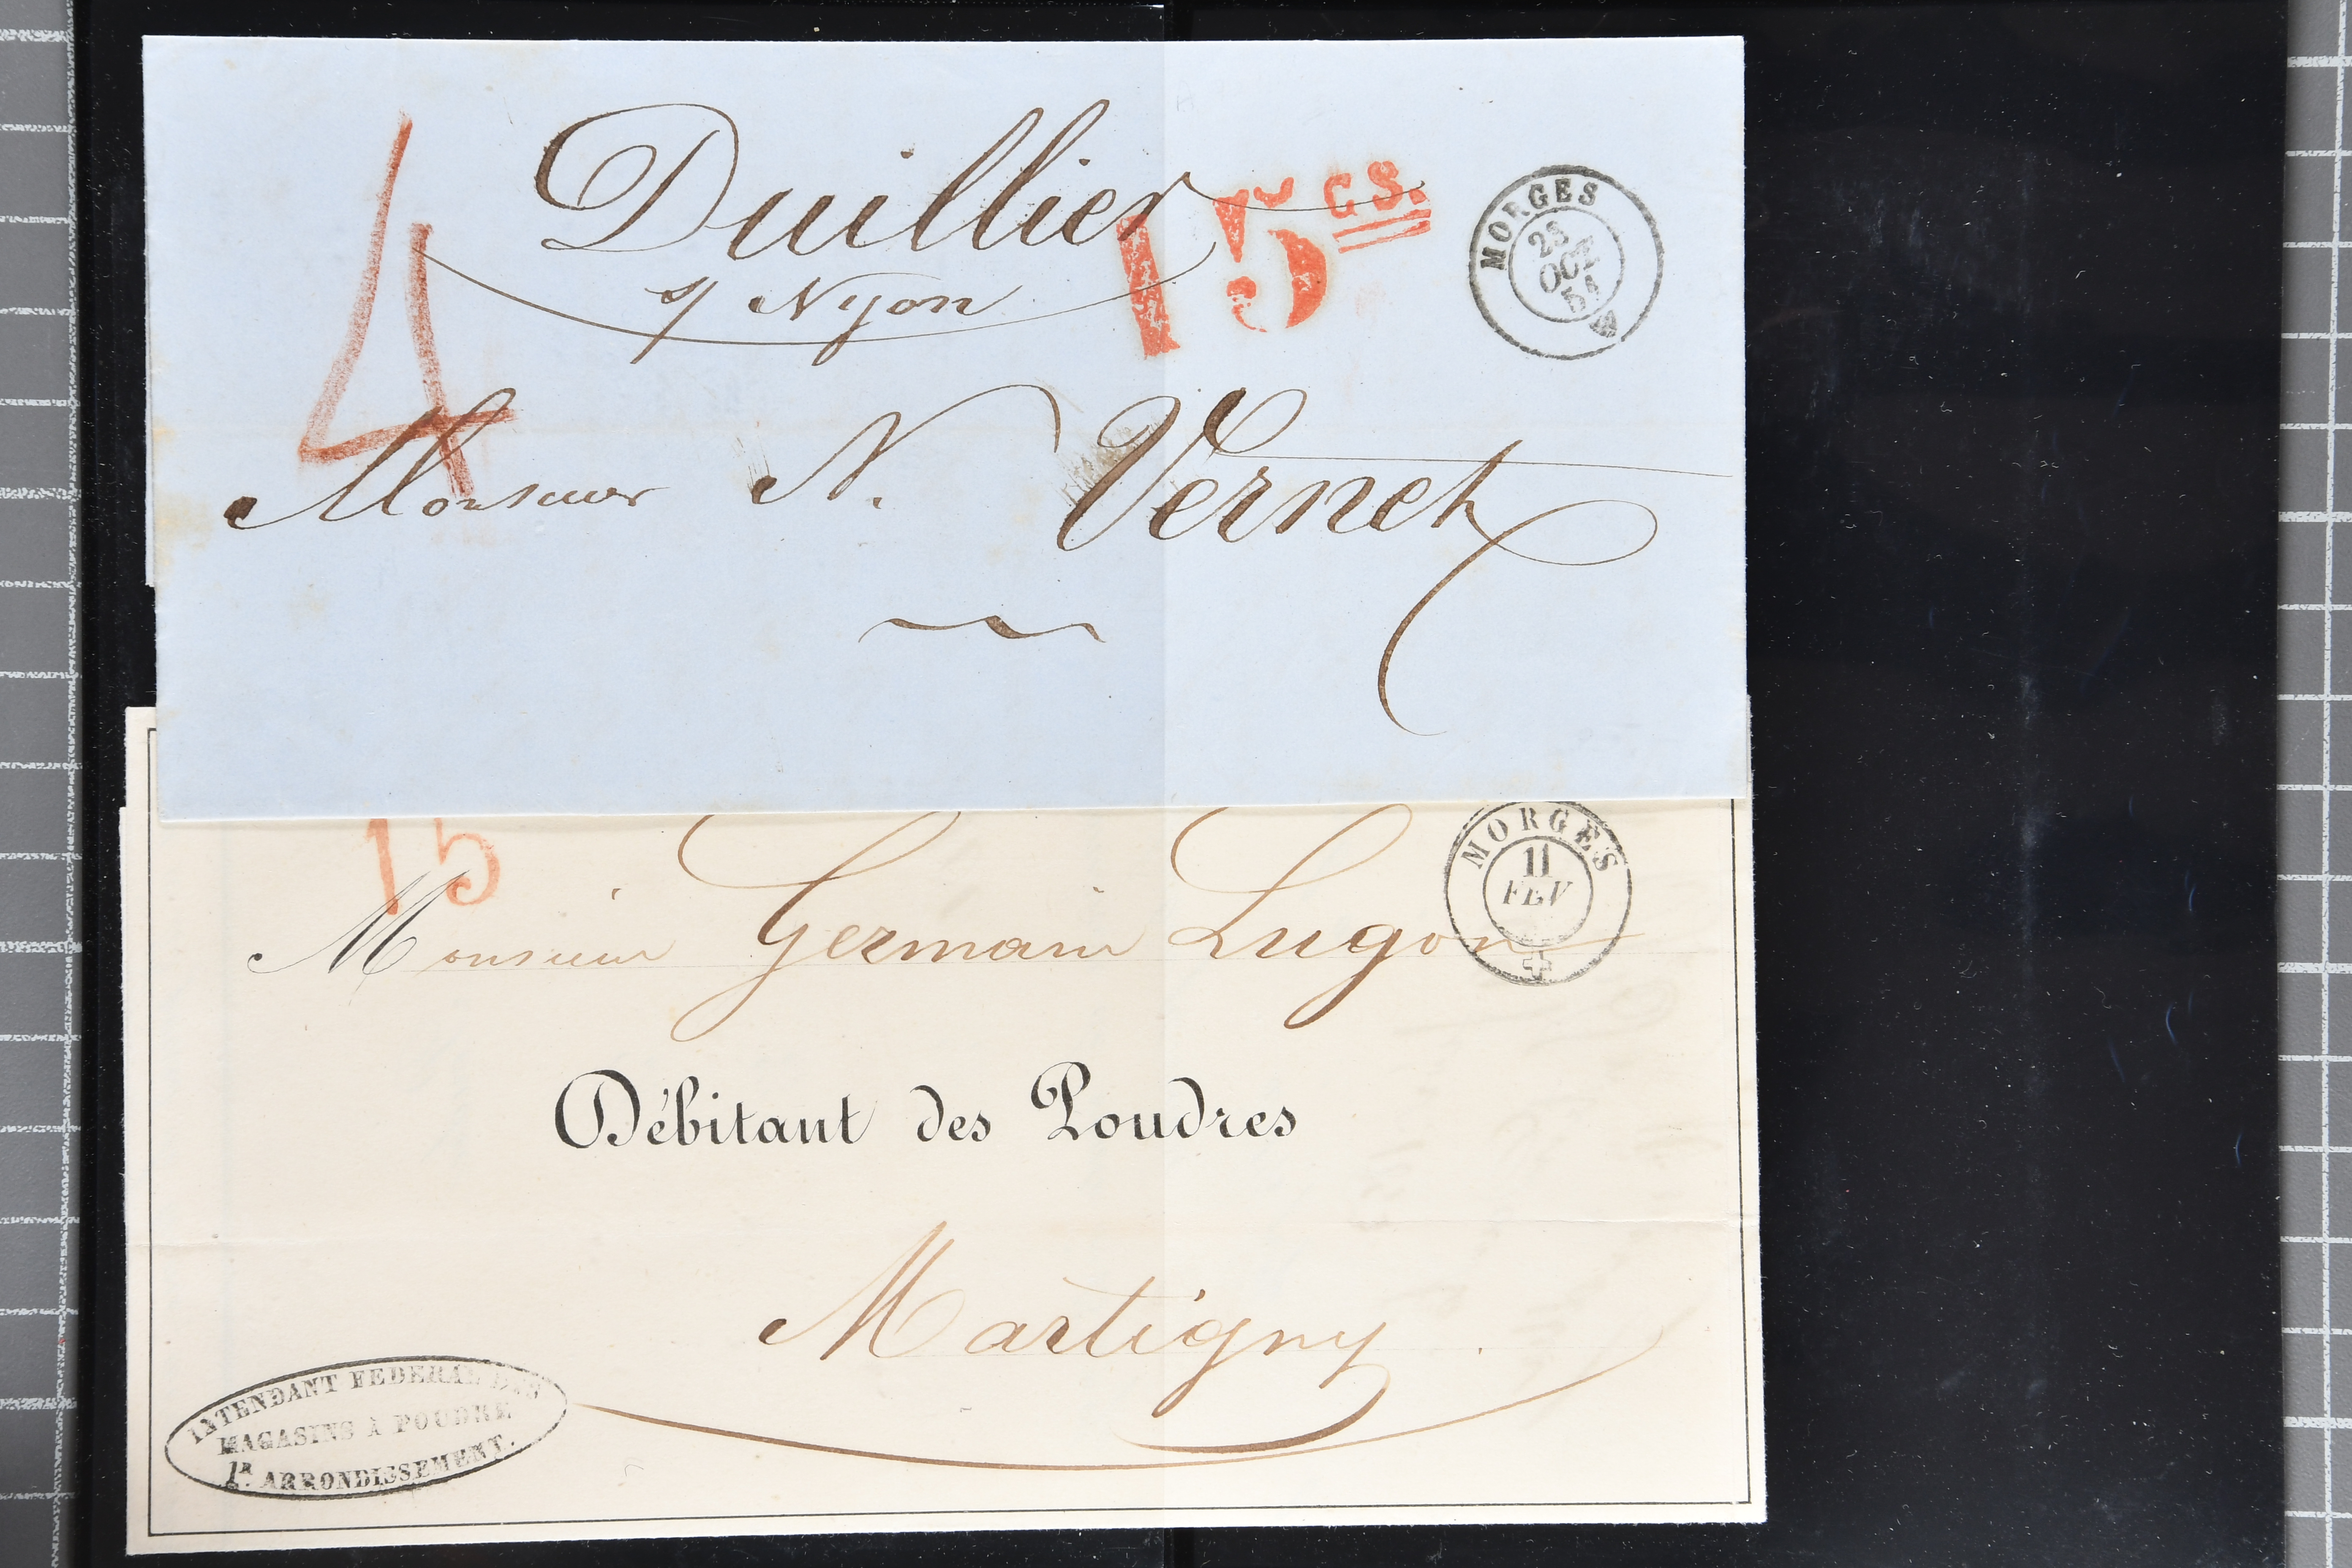 4
Duillier
s/ Nyon
15 CS.
MORGES
OCT
Monsieur N. Vernet
15
MORGES
11
FEV
Monsieur Germain Lugon
Débitant des Poudres
Martigny
INTENDANT FEDERAL DES
MAGASINS A POUDRE
1R. ARRONDISSEMENT.